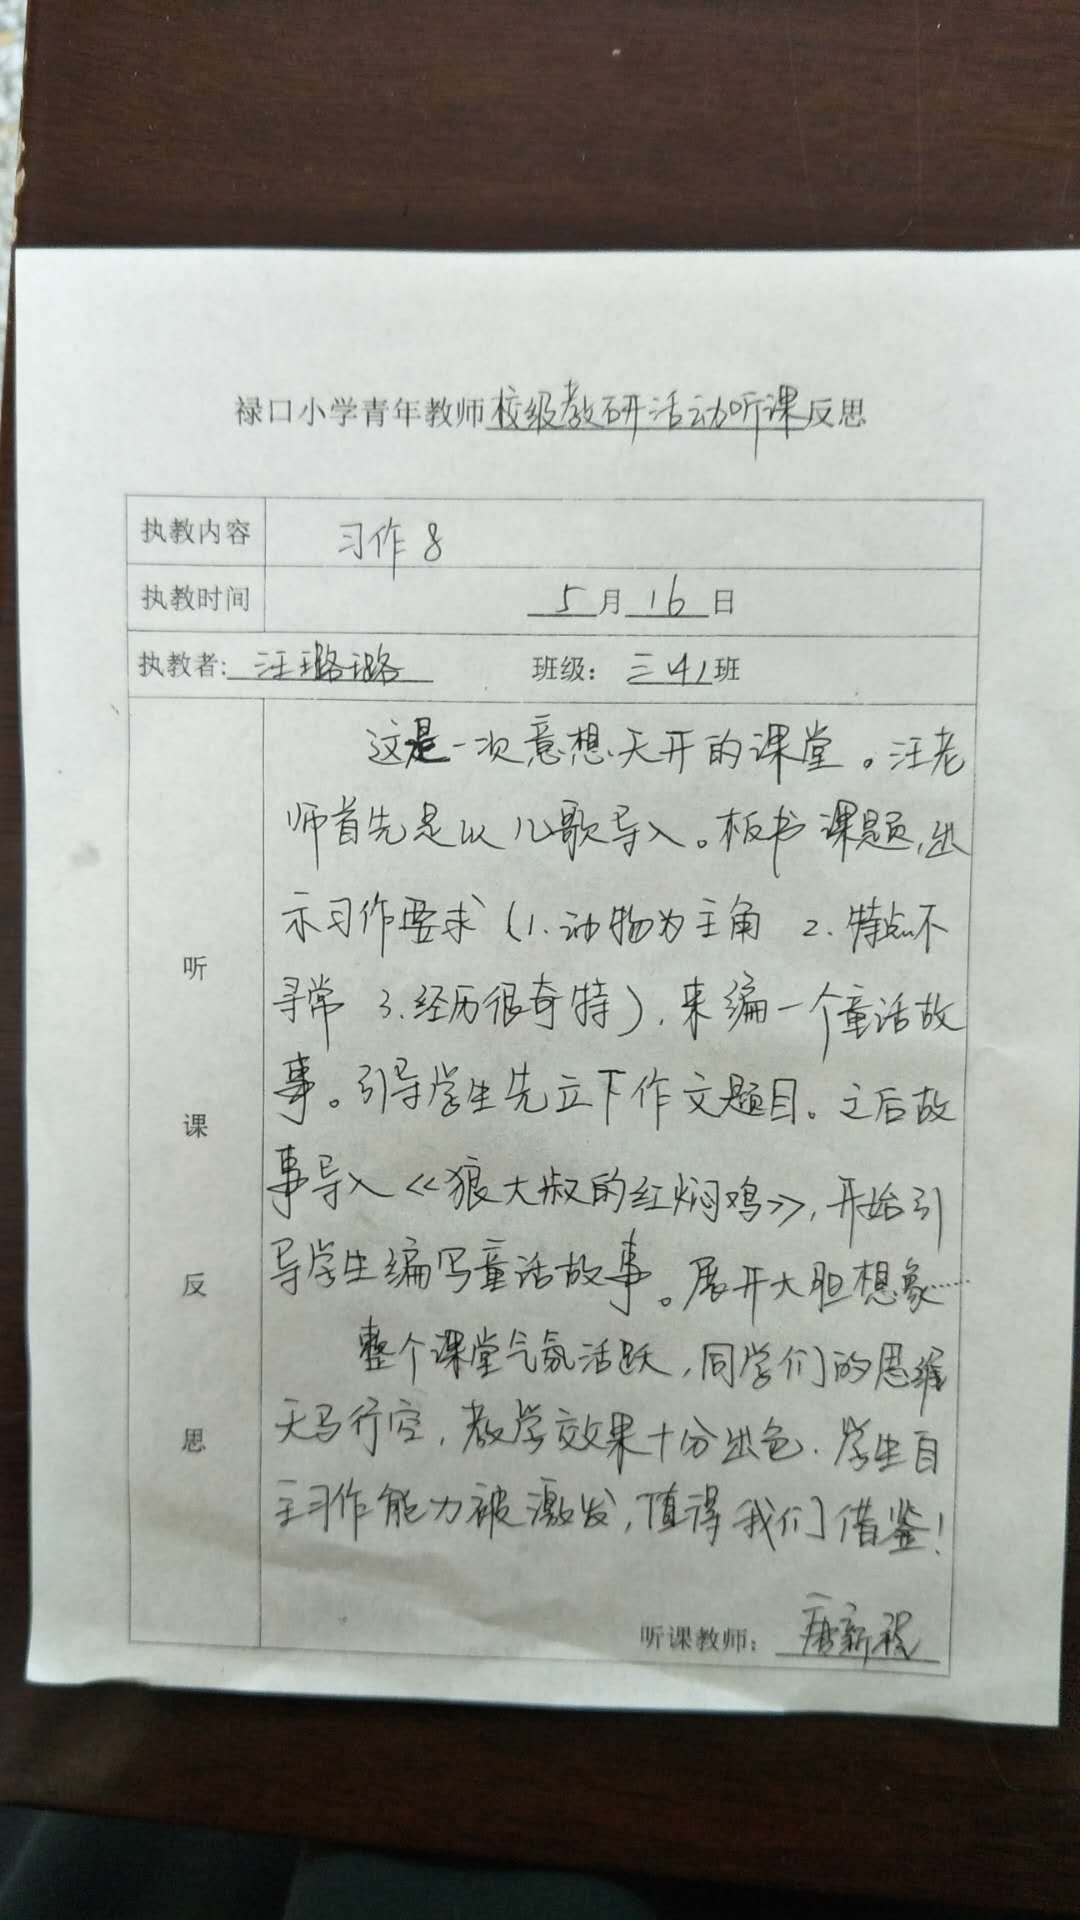 禄口小学青年教师校级教研活动听课反思
执教内容 习作8
执教时间 5月16日
执教者: 汪璐璐 班级: 三(4)班
听课反思
这是一次意想天开的课堂。汪老
师首先是以儿歌导入。板书课题,出
示习作要求(1.动物为主角 2.特点不
寻常 3.经历很奇特),来编一个童话故
事。引导学生先立下作文题目。之后故
事导入《狼大叔的红焖鸡》,开始引
导学生编写童话故事。展开大胆想象……
整个课堂气氛活跃,同学们的思维
天马行空,教学效果十分出色.学生自
主习作能力被激发,值得我们借鉴!
听课教师: 唐新